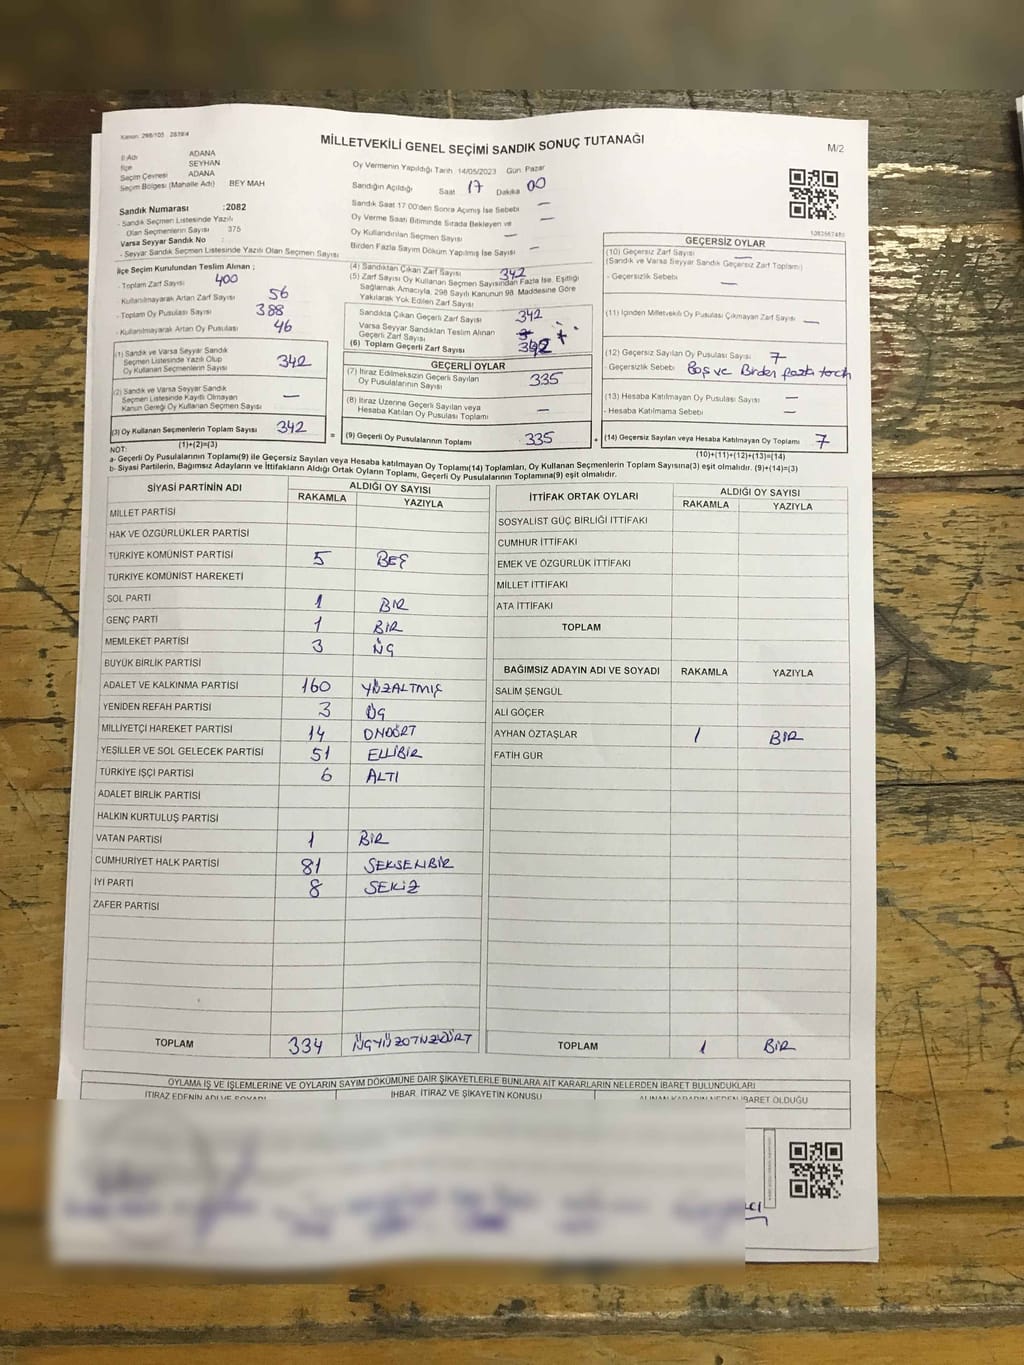 Kanun: 298/105 2839/4
MİLLETVEKİLİ GENEL SEÇİMİ SANDIK SONUÇ TUTANAĞI
M/2
İl Adı ADANA
İlçe SEYHAN
Seçim Çevresi ADANA
Seçim Bölgesi (Mahalle Adı) BEY MAH
Oy Vermenin Yapıldığı Tarih 14/05/2023 Gün Pazar
Sandığın Açıldığı Saat 17 Dakika 00
Sandık Saat 17:00'den Sonra Açımış İse Sebebi —
Oy Verme Saati Bitiminde Sırada Bekleyen ve —
Oy Kullandırılan Seçmen Sayısı —
Birden Fazla Sayım Döküm Yapılmış İse Sayısı —
Sandık Numarası :2082
- Sandık Seçmen Listesinde Yazılı
Olan Seçmenlerin Sayısı 375
Varsa Seyyar Sandık No
- Seyyar Sandık Seçmen Listesinde Yazılı Olan Seçmen Sayısı
İlçe Seçim Kurulundan Teslim Alınan ;
- Toplam Zarf Sayısı 400
- Kullanılmayarak Artan Zarf Sayısı 56
- Toplam Oy Pusulası 388
- Kullanılmayarak Artan Oy Pusulası 46
(1) Sandık ve Varsa Seyyar Sandık
Seçmen Listesinde Yazılı Olup
Oy Kullanan Seçmenlerin Sayısı 342
(2) Sandık ve Varsa Seyyar Sandık
Seçmen Listesinde Kayıtlı Olmayan
Kanun Gereği Oy Kullanan Seçmen Sayısı —
(3) Oy Kullanan Seçmenlerin Toplam Sayısı 342
(1)+(2)=(3)
(4) Sandıktan Çıkan Zarf Sayısı 342
(5) Zarf Sayısı Oy Kullanan Seçmen Sayısından Fazla İse, Eşitliği
Sağlamak Amacıyla, 298 Sayılı Kanunun 98. Maddesine Göre
Yakılarak Yok Edilen Zarf Sayısı
Sandıkta Çıkan Geçerli Zarf Sayısı 342
Varsa Seyyar Sandıktan Teslim Alınan
Geçerli Zarf Sayısı
(6) Toplam Geçerli Zarf Sayısı 342
GEÇERLİ OYLAR
(7) İtiraz Edilmeksizin Geçerli Sayılan
Oy Pusulalarının Sayısı 335
(8) İtiraz Üzerine Geçerli Sayılan veya
Hesaba Katılan Oy Pusulası Toplamı —
= (9) Geçerli Oy Pusulalarının Toplamı 335
GEÇERSİZ OYLAR
(10) Geçersiz Zarf Sayısı —
(Sandık ve Varsa Seyyar Sandık Geçersiz Zarf Toplamı)
- Geçersizlik Sebebi —
(11) İçinden Milletvekili Oy Pusulası Çıkmayan Zarf Sayısı —
(12) Geçersiz Sayılan Oy Pusulası Sayısı 7
- Geçersizlik Sebebi Boş ve Birden fazla
(13) Hesaba Katılmayan Oy Pusulası Sayısı —
- Hesaba Katılmama Sebebi —
+ (14) Geçersiz Sayılan veya Hesaba Katılmayan Oy Toplamı 7
(10)+(11)+(12)+(13)=(14)
NOT:
a- Geçerli Oy Pusulalarının Toplamı(9) ile Geçersiz Sayılan veya Hesaba katılmayan Oy Toplamı(14) Toplamları, Oy Kullanan Seçmenlerin Toplam Sayısına(3) eşit olmalıdır. (9)+(14)=(3)
b- Siyasi Partilerin, Bağımsız Adayların ve İttifakların Aldığı Ortak Oyların Toplamı, Geçerli Oy Pusulalarının Toplamına(9) eşit olmalıdır.
SİYASİ PARTİNİN ADI ALDIĞI OY SAYISI
RAKAMLA YAZIYLA
MİLLET PARTİSİ
HAK VE ÖZGÜRLÜKLER PARTİSİ
TÜRKİYE KOMÜNİST PARTİSİ 5 BEŞ
TÜRKİYE KOMÜNİST HAREKETİ
SOL PARTİ 1 BİR
GENÇ PARTİ 1 BİR
MEMLEKET PARTİSİ 3 ÜÇ
BÜYÜK BİRLİK PARTİSİ
ADALET VE KALKINMA PARTİSİ 160 YÜZALTMIŞ
YENİDEN REFAH PARTİSİ 3 ÜÇ
MİLLİYETÇİ HAREKET PARTİSİ 14 ONDÖRT
YEŞİLLER VE SOL GELECEK PARTİSİ 51 ELLİBİR
TÜRKİYE İŞÇİ PARTİSİ 6 ALTI
ADALET BİRLİK PARTİSİ
HALKIN KURTULUŞ PARTİSİ
VATAN PARTİSİ 1 BİR
CUMHURİYET HALK PARTİSİ 81 SEKSENBİR
İYİ PARTİ 8 SEKİZ
ZAFER PARTİSİ
TOPLAM 334 ÜÇYÜZOTUZDÖRT
İTTİFAK ORTAK OYLARI ALDIĞI OY SAYISI
RAKAMLA YAZIYLA
SOSYALİST GÜÇ BİRLİĞİ İTTİFAKI
CUMHUR İTTİFAKI
EMEK VE ÖZGÜRLÜK İTTİFAKI
MİLLET İTTİFAKI
ATA İTTİFAKI
TOPLAM
BAĞIMSIZ ADAYIN ADI VE SOYADI RAKAMLA YAZIYLA
SALİM ŞENGÜL
ALİ GÖÇER
AYHAN ÖZTAŞLAR 1 BİR
FATİH GÜR
TOPLAM 1 BİR
OYLAMA İŞ VE İŞLEMLERİNE VE OYLARIN SAYIM DÖKÜMÜNE DAİR ŞİKAYETLERLE BUNLARA AİT KARARLARIN NELERDEN İBARET BULUNDUKLARI
İTİRAZ EDENİN ADI VE SOYADI İHBAR, İTİRAZ VE ŞİKAYETİN KONUSU ALINAN KARARIN NEDEN İBARET OLDUĞU